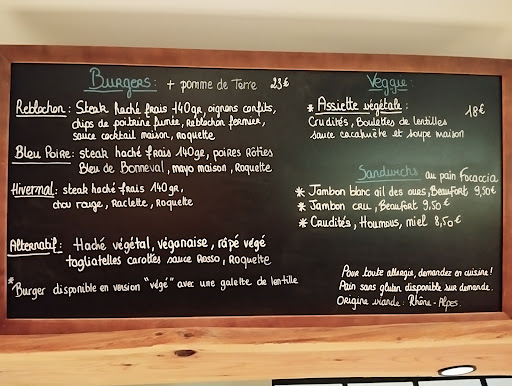 Burgers : + pomme de Terre 23€
Reblochon : Steak haché frais 140gr, oignons confits,
chips de poitrine fumée, reblochon fermier,
sauce cocktail maison, roquette
Bleu Poire : steak haché frais 140gr, poires Rôties
Bleu de Bonneval, mayo maison, Roquette
Hivernal : steak haché frais 140gr,
chou rouge, Raclette, Roquette
Alternatif : Haché végétal, véganaise, râpé végé
tagliatelles carottes sauce Rosso, Roquette
*Burger disponible en version "végé" avec une galette de lentille
Veggie :
* Assiette végétale : 18€
Crudités, Boulettes de lentilles
sauce cacahuète et soupe maison
Sandwichs au pain Focaccia
* Jambon blanc ail des ours, Beaufort 9,50€
* Jambon cru, Beaufort 9,50€
* Crudités, Houmous, miel 8,50€
Pour toute allergie, demandez en cuisine !
Pain sans gluten disponible sur demande.
Origine viande : Rhône-Alpes.